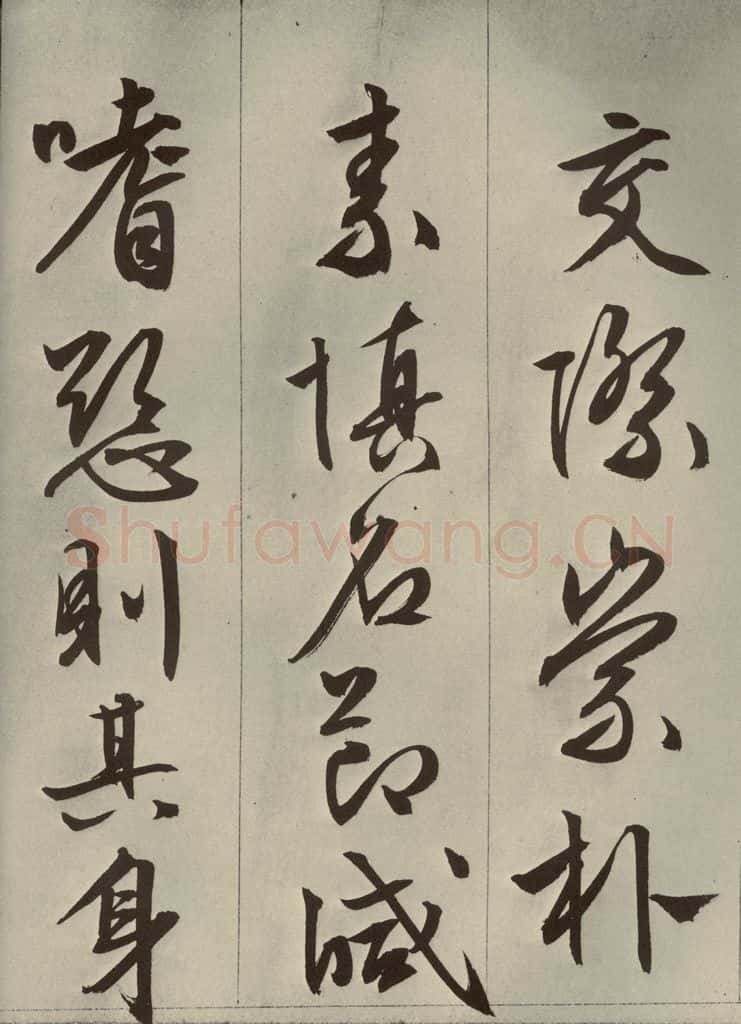 交際崇朴
素慎名節減
嗜慾則其身
Shufawang.CN